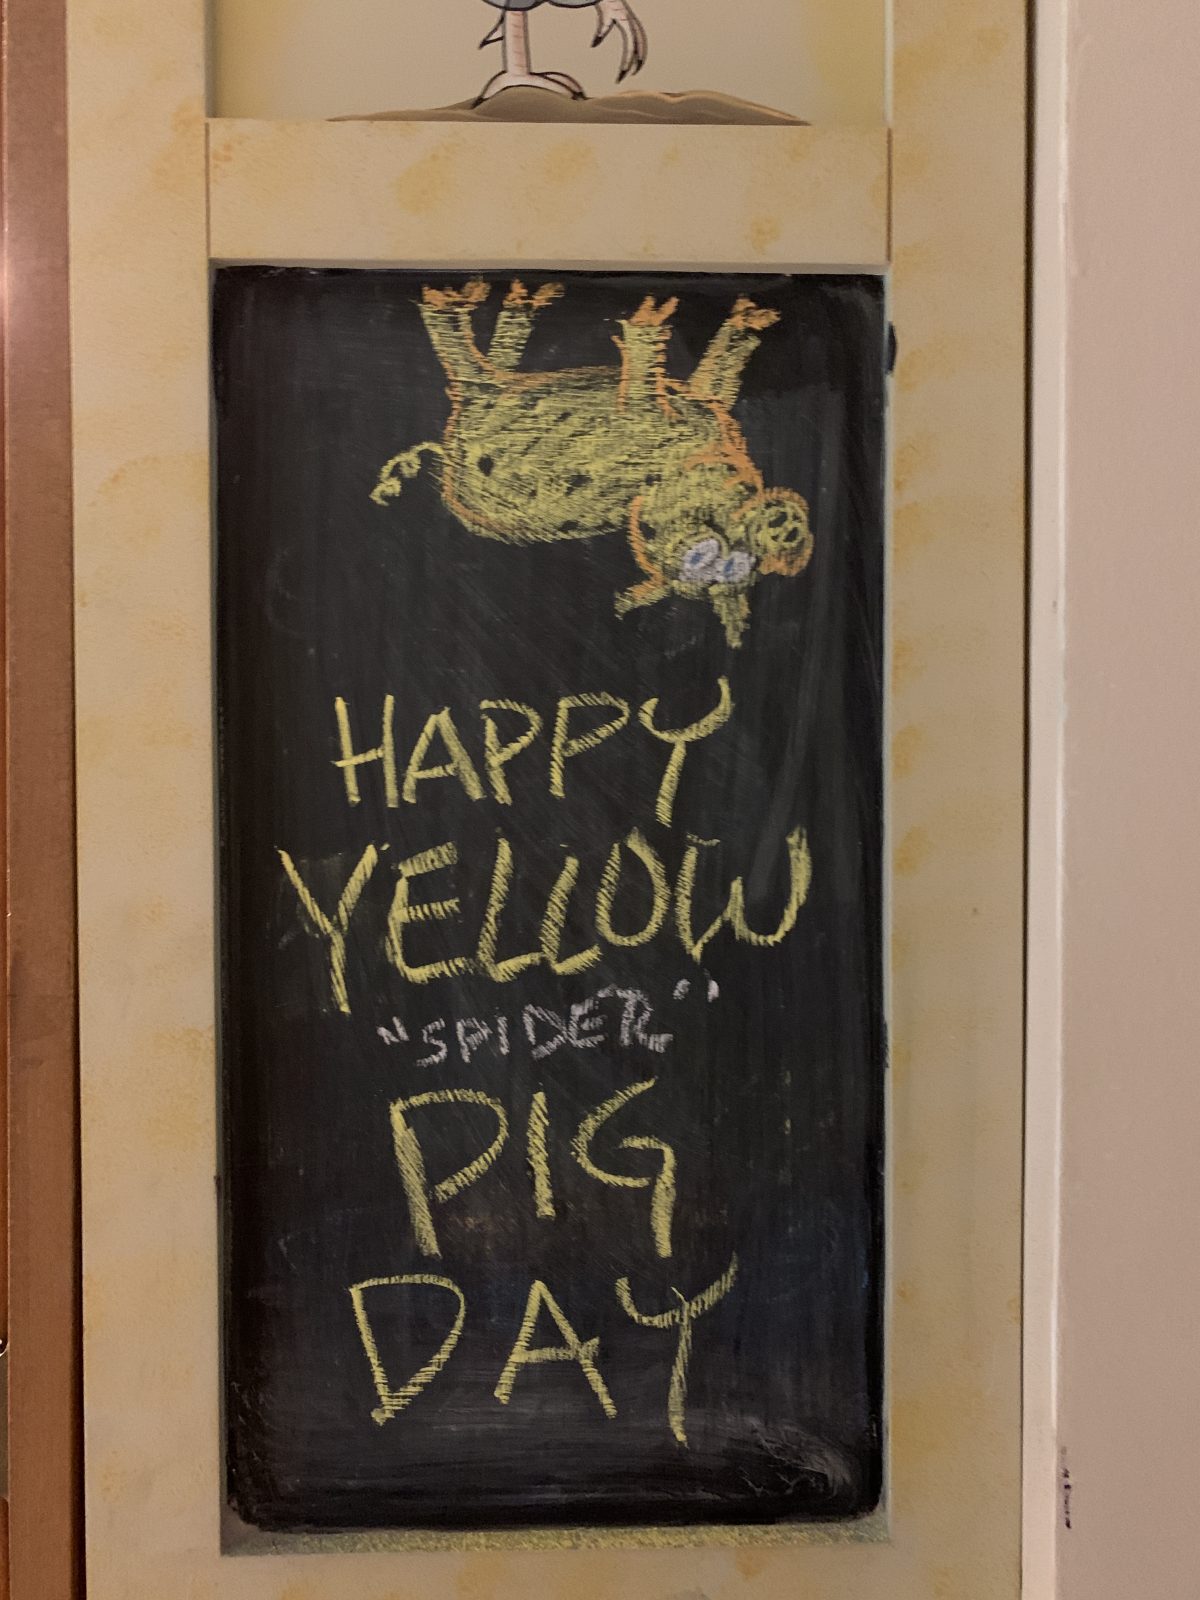 HAPPY
YELLOW
"SPIDER"
PIG
DAY